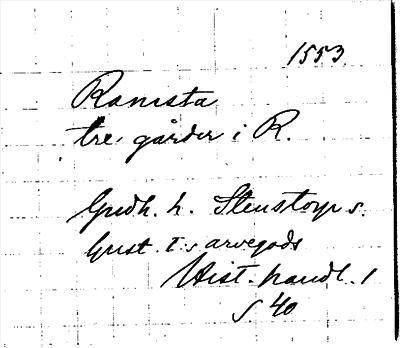 1553
Ramsta
tre gårdar i R.
Gudh. h. Stenstorps s.
Gust. I:s arvegods
Hist. handl. 1
s 40